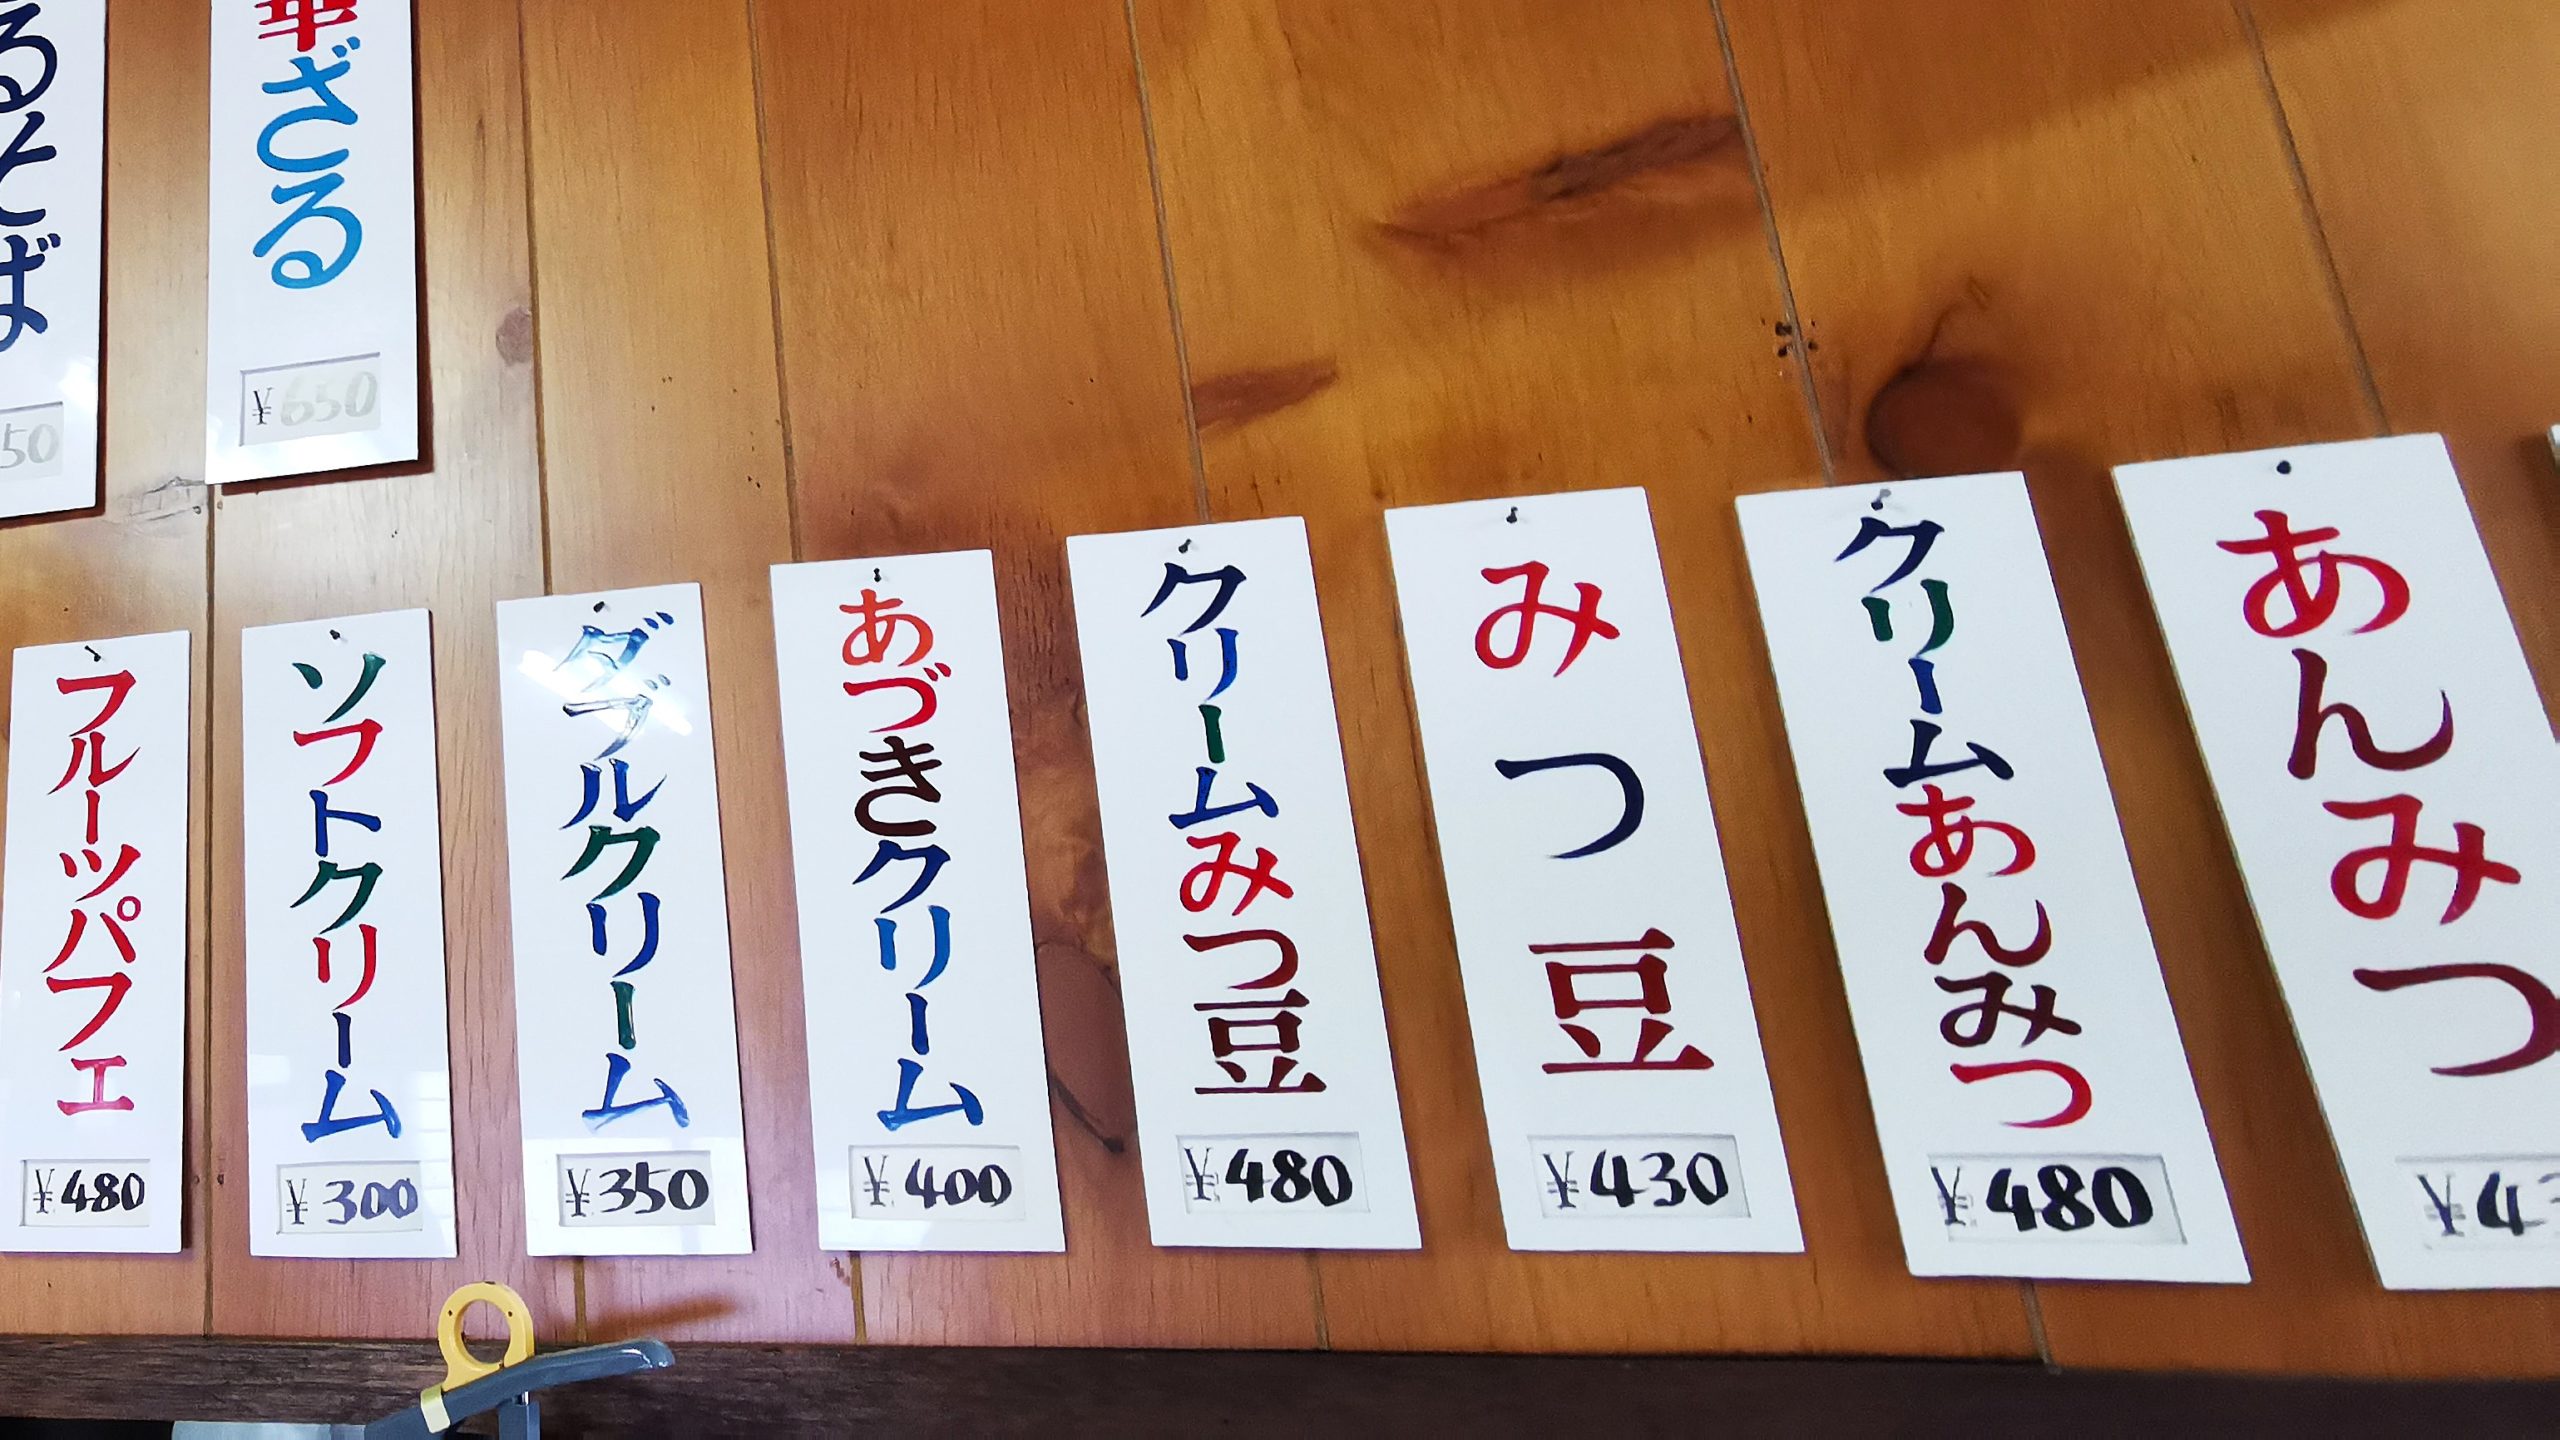 るそば
50
華ざる
¥650
あんみつ
¥43
クリームあんみつ
¥480
みつ豆
¥430
クリームみつ豆
¥480
あづきクリーム
¥400
ダブルクリーム
¥350
ソフトクリーム
¥300
フルーツパフェ
¥480